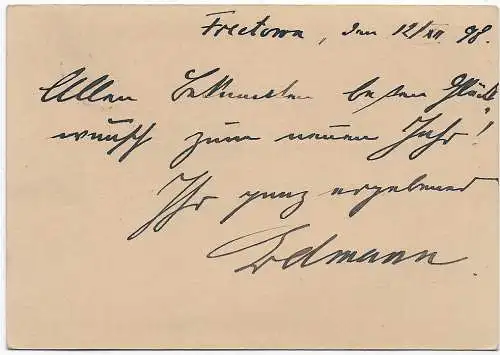 Freetown, den 12/XII 98.
Allen Bekannten besten Glück
wunsch zum neuen Jahr!
Ihr ganz ergebener
Edmann.